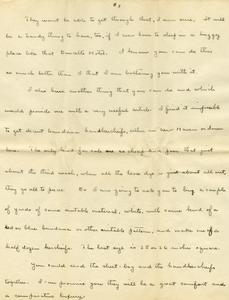 #3
They won't be able to get through that, I am sure. It will
be a handy thing to have, too, if I ever have to sleep in a buggy
place like that Hotel. I know you can do this
so much better than I that I am bothering you with it.
I also have another thing that you can do and which
would provide me with a very useful article. I find it impossible
to get decent bandana handkerchiefs, either in New Mexico or down
here. The only kind for sale are so cheap and poor that just
about the third wash, when all the loose dye is just about all out,
they go all to pieces. So I am going to ask you to buy a couple
of yards of some suitable material, white, with some kind of a
red or blue bandana or other suitable pattern, and make me a
half dozen kerchiefs. The best size is 25 or 26 inches square.
You could send the sheet-bag and the handkerchiefs
together. I can promise you they will be a great comfort and
a comparative luxury.